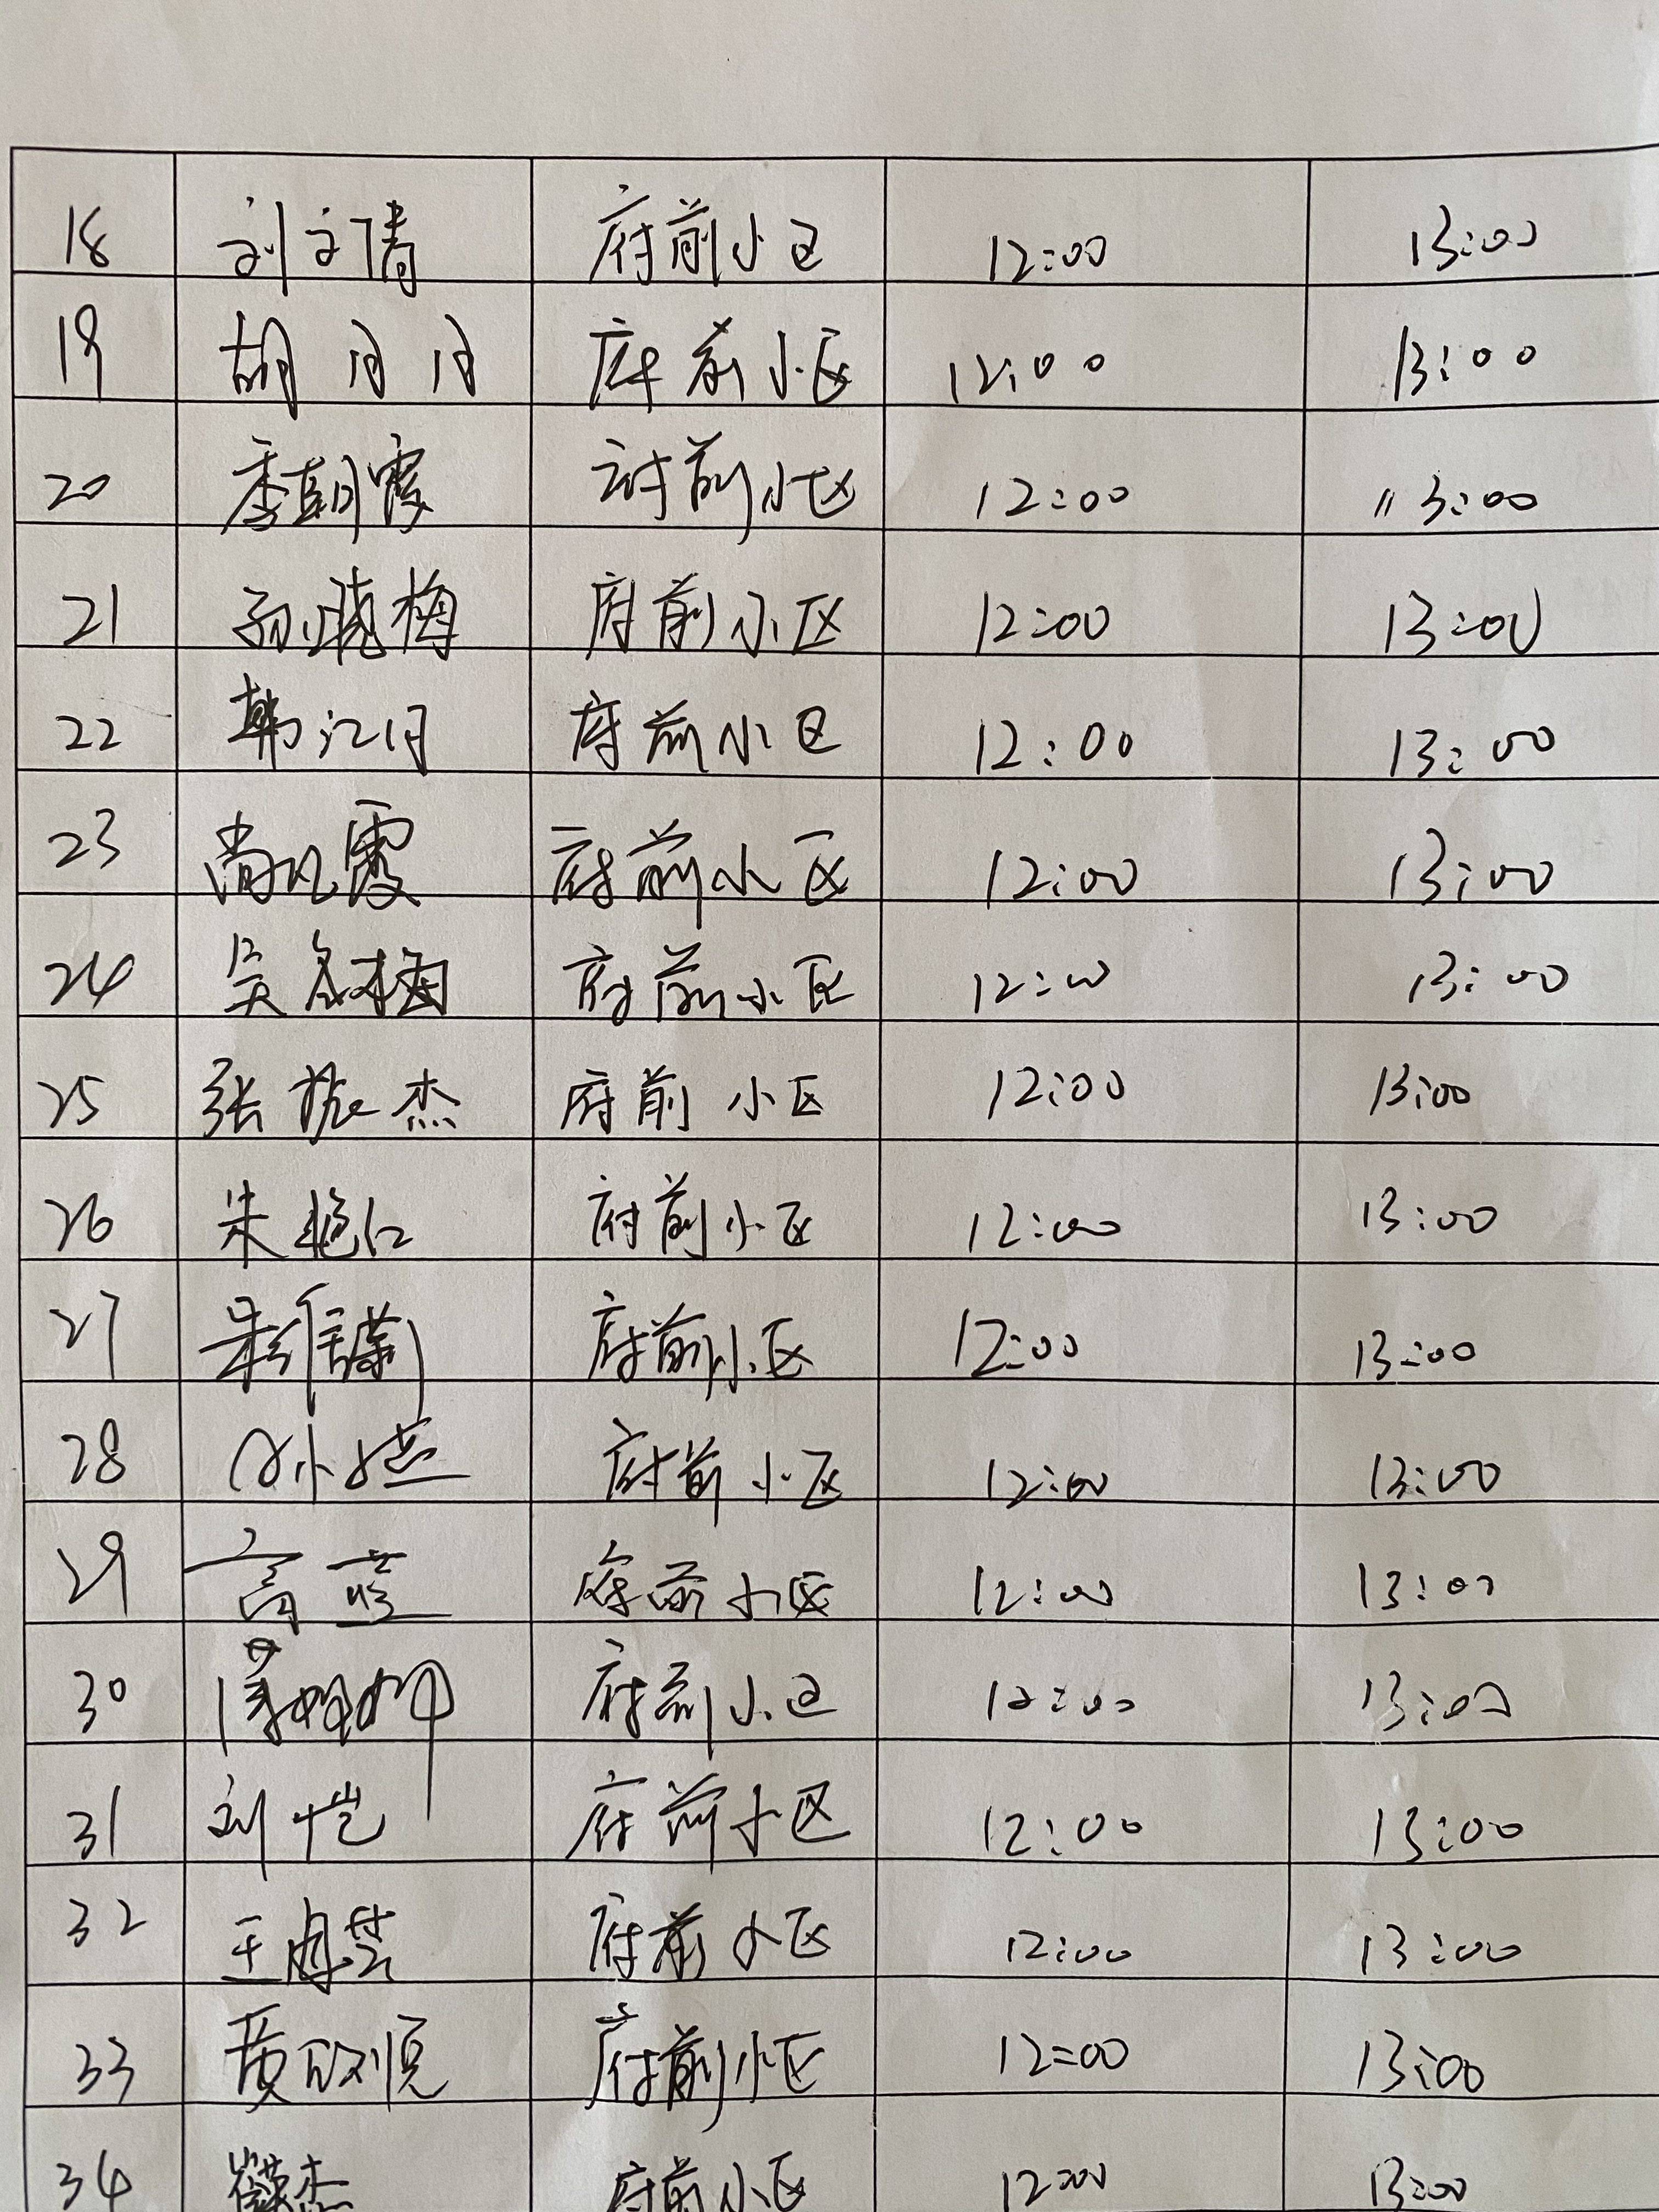 18 刘文倩 府前小区 12:00 13:00
19 胡月月 府前小区 12:00 13:00
20 李朝霞 府前小区 12:00 13:00
21 孙晓梅 府前小区 12:00 13:00
22 韩江月 府前小区 12:00 13:00
23 尚凡霞 府前小区 12:00 13:00
24 吴冬梅 府前小区 12:00 13:00
25 张振杰 府前小区 12:00 13:00
26 朱艳红 府前小区 12:00 13:00
27 府前小区 12:00 13:00
28 府前小区 12:00 13:00
29 高蓝 府前小区 12:00 13:00
30 府前小区 12:00 13:00
31 刘恺 府前小区 12:00 13:00
32 府前小区 12:00 13:00
33 黄欣悦 府前小区 12:00 13:00
34 府前小区 12:00 13:00